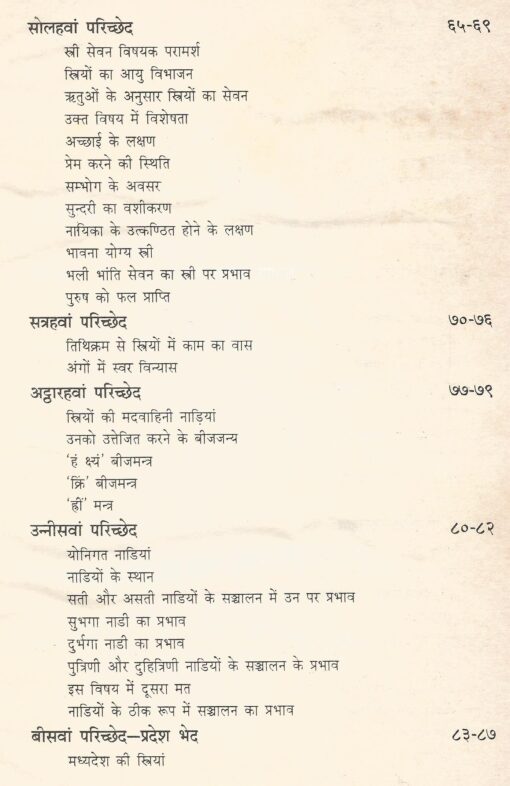 सोलहवां परिच्छेद ६५-६९
स्त्री सेवन विषयक परामर्श
स्त्रियों का आयु विभाजन
ऋतुओं के अनुसार स्त्रियों का सेवन
उक्त विषय में विशेषता
अच्छाई के लक्षण
प्रेम करने की स्थिति
सम्भोग के अवसर
सुन्दरी का वशीकरण
नायिका के उत्कण्ठित होने के लक्षण
भावना योग्य स्त्री
भली भांति सेवन का स्त्री पर प्रभाव
पुरुष को फल प्राप्ति
सत्रहवां परिच्छेद ७०-७६
तिथिक्रम से स्त्रियों में काम का वास
अंगों में स्वर विन्यास
अट्ठारहवां परिच्छेद ७७-७९
स्त्रियों की मदवाहिनी नाड़ियां
उनको उत्तेजित करने के बीजजन्य
‘हं क्ष्यं’ बीजमन्त्र
‘क्रिं’ बीजमन्त्र
‘ह्रीं’ मन्त्र
उन्नीसवां परिच्छेद ८०-८२
योनिगत नाडियां
नाडियों के स्थान
सती और असती नाडियों के सञ्चालन में उन पर प्रभाव
सुभगा नाडी का प्रभाव
दुर्भगा नाडी का प्रभाव
पुत्रिणी और दुहित्रिणी नाडियों के सञ्चालन के प्रभाव
इस विषय में दूसरा मत
नाडियों के ठीक रूप में सञ्चालन का प्रभाव
बीसवां परिच्छेद–प्रदेश भेद ८३-८७
मध्यदेश की स्त्रियां